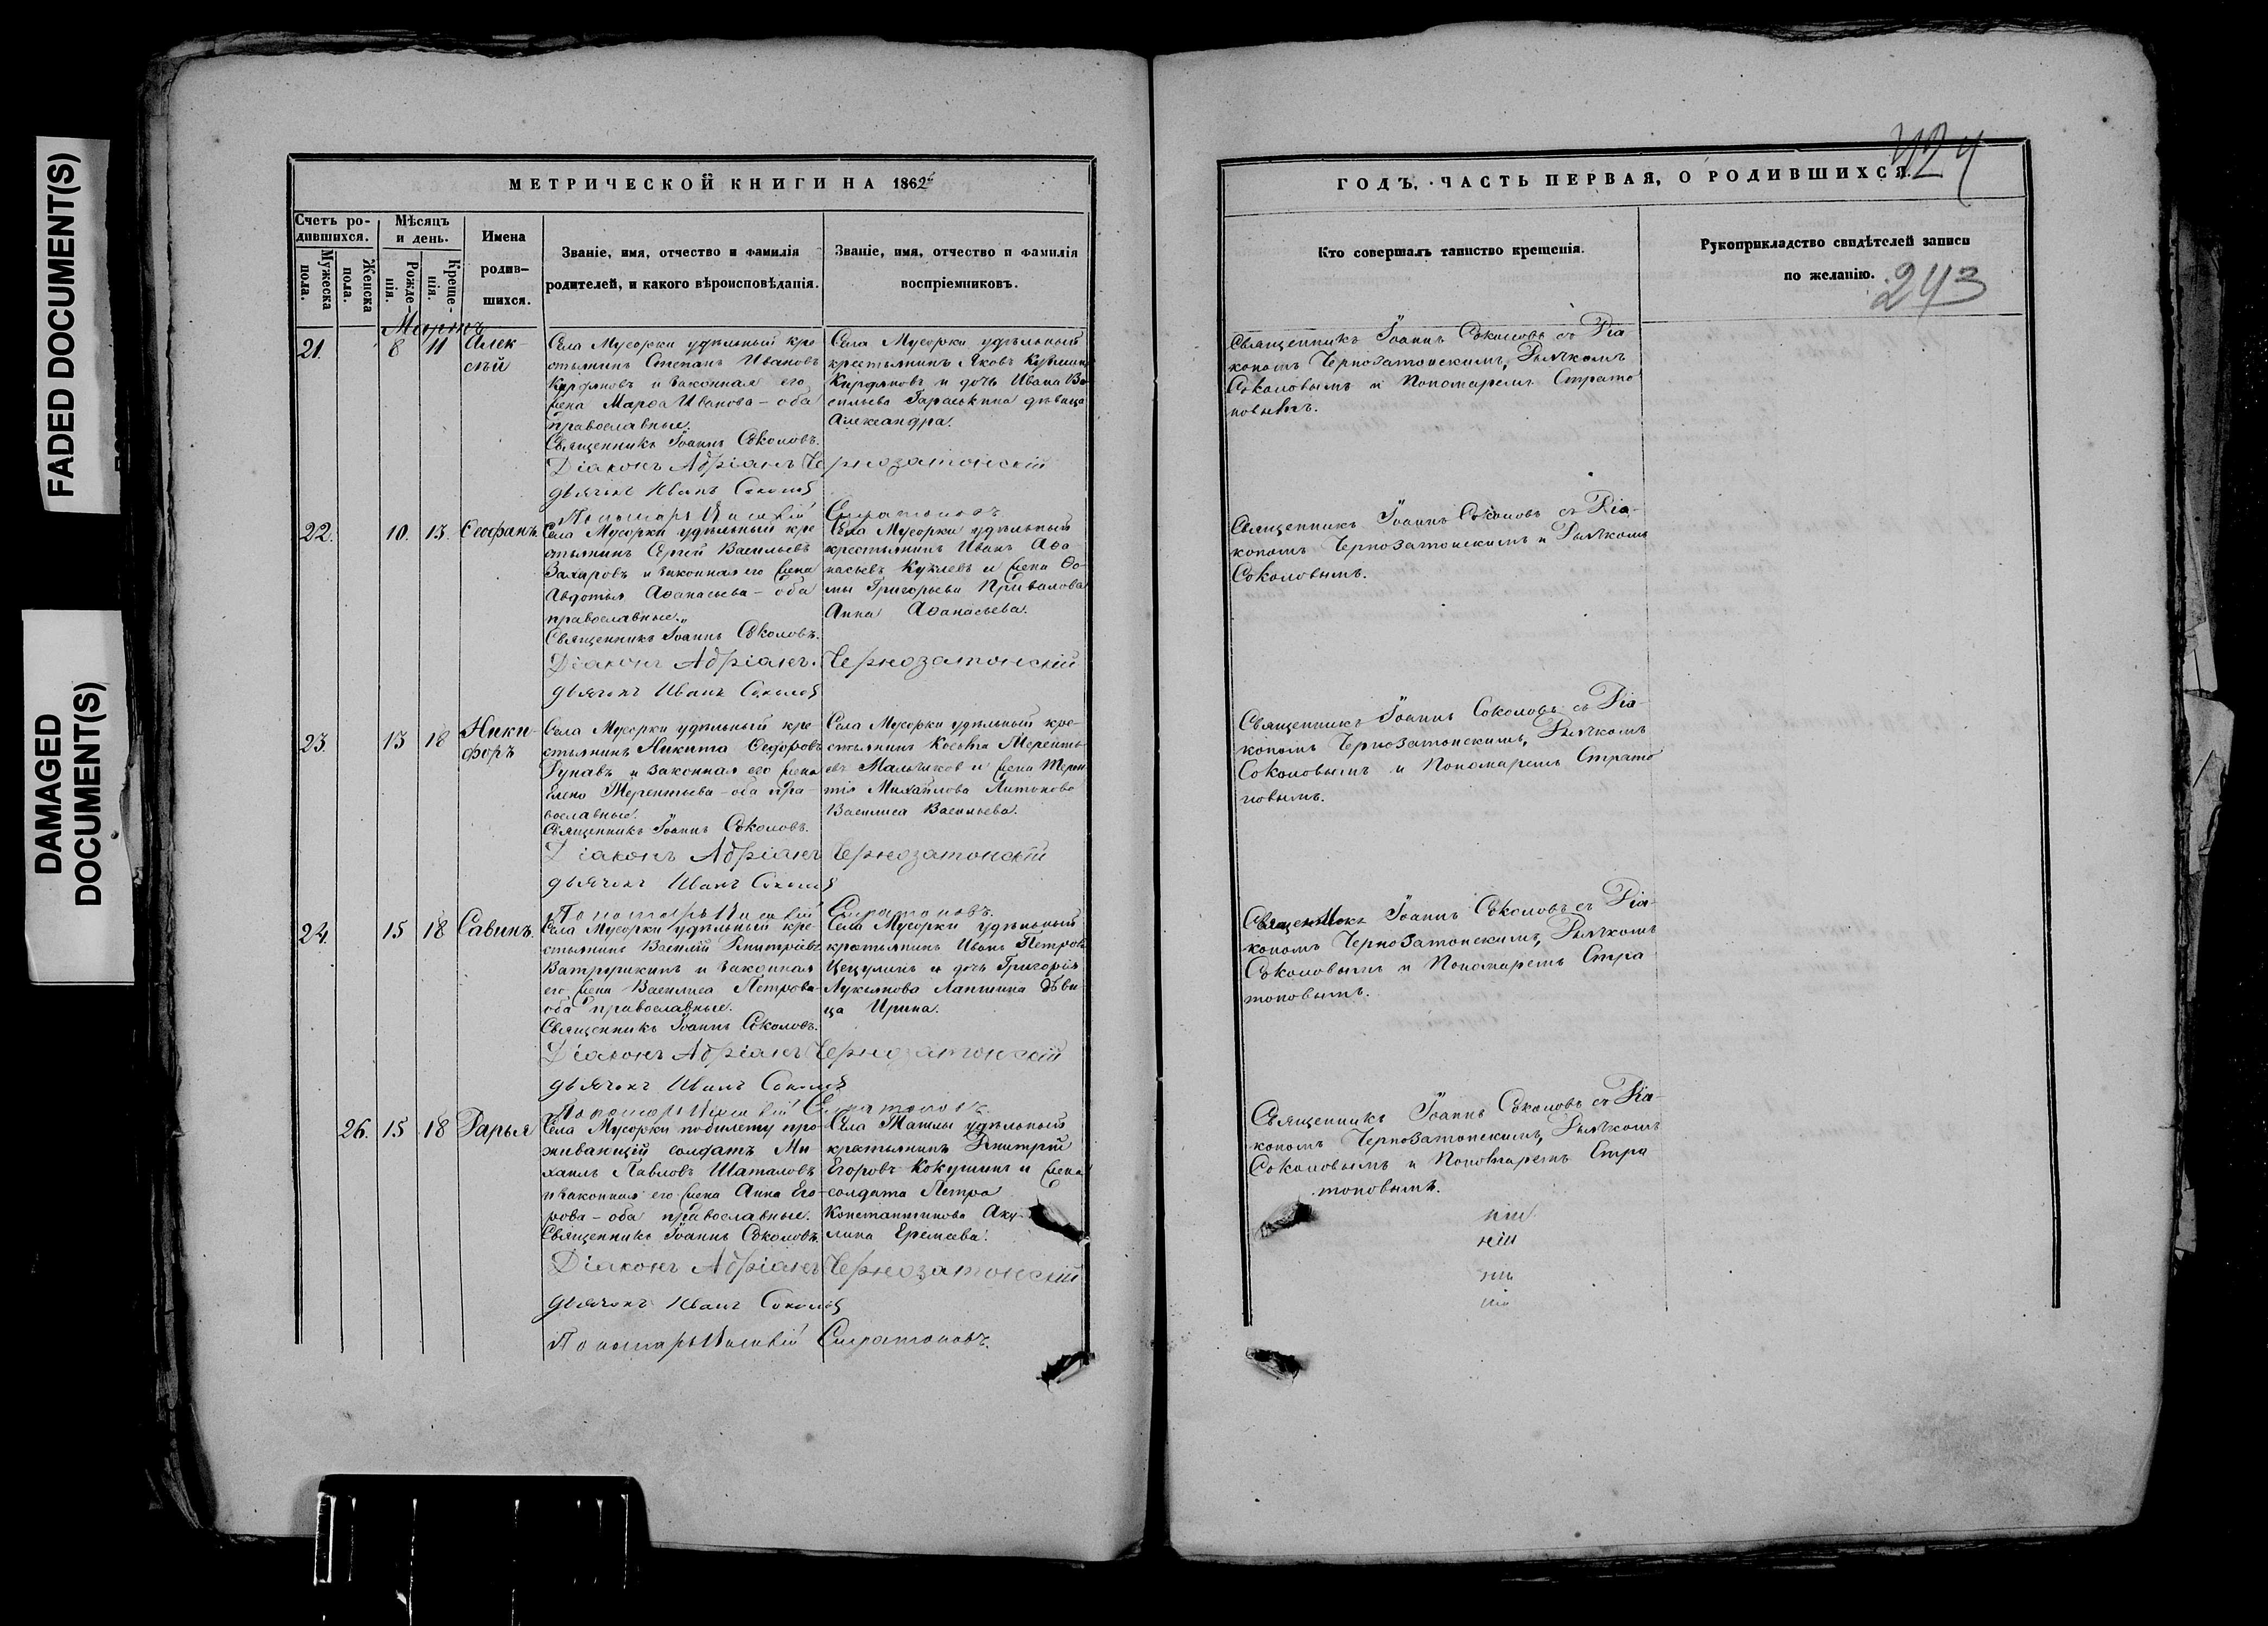 FADED DOCUMENT(S)
DAMAGED
DOCUMENT(S)
МЕТРИЧЕСКОЙ КНИГИ НА 1862
Счетъ ро-
дившихся.
Мужеска
пола.
Женска
пола.
Мѣсяцъ
и день.
Рожде-
нія.
Креще-
нія.
Имена
родив-
шихся.
Званіе, имя, отчество и фамилія
родителей, и какого вѣроисповѣданія.
Званіе, имя, отчество и фамилія
воспріемниковъ.
Мартъ
21. 8 11 Алек-
сѣй
Села Мусорки удѣльный кре
стьянинъ Степанъ Ивановъ
и законная его
жена Марѳа Иванова - оба
православные.
Священникъ Іоаннъ Соколовъ.
Діаконъ Адріанъ Чернозатонскій
дьячекъ Иванъ Соколов
Пономарь Стратоновъ
Села Мусорки удѣльный
крестьянинъ Яковъ
и дочь Ивана Ва
сильева дѣвица
Александра.
22. 10. 13. Ѳеофанъ
Села Мусорки удѣльный кре
стьянинъ Сергей Васильевъ
Захаровъ и законная его жена
Авдотья Аѳанасьева - оба
православные.
Священникъ Іоаннъ Соколовъ.
Діаконъ Адріанъ Чернозатонскій
дьячекъ Иванъ Соколов
Села Мусорки удѣльный
крестьянинъ Иванъ Аѳа
насьевъ Куклевъ и жена Ѳо-
мы Григорьева Привалова
Анна Аѳанасьева.
23. 13 18 Ники-
форъ
Села Мусорки удѣльный кре-
стьянинъ Никита Ѳедоровъ
и законная его жена
Елена Терентьева - оба пра
вославные.
Священникъ Іоаннъ Соколовъ.
Діаконъ Адріанъ Чернозатонскій
дьячекъ Иванъ Соколов
Пономарь Стратоновъ.
Села Мусорки удѣльный кре-
стьянинъ Косьма Терентье-
евъ Мальчиков и жена Терен
тія Михайлова Антонова
Василиса Васильева.
24. 15 18 Савинъ.
Села Мусорки удѣльный кре-
стьянинъ Василій Дмитріевъ
и законная
его жена Василиса Петрова-
оба православные.
Священникъ Іоаннъ Соколовъ.
Діаконъ Адріанъ Чернозатонскій
дьячекъ Иванъ Соколов
Пономарь Стратоновъ
Села Мусорки удѣльный
крестьянинъ Иванъ Петровъ
и дочь Григорія
Лукьянова Лапшина дѣви
ца Ирина.
26. 15 18 Дарья
Села Мусорки по билету про
живающій солдатъ Ми
хаилъ Павловъ Шаталовъ
и законная его жена Анна Его-
рова - оба православные.
Священникъ Іоаннъ Соколовъ.
Діаконъ Адріанъ Чернозатонскій
дьячекъ Иванъ Соколов
Пономарь Стратоновъ.
Села Ташлы удѣльный
крестьянинъ Дмитрій
Егоровъ Кокушинъ и жена
солдата Петра
Константинова Аку-
лина Еремеева.
ГОДЪ, ЧАСТЬ ПЕРВАЯ, О РОДИВШИХСЯ.
424
Кто совершалъ таинство крещенія.
Рукоприкладство свидѣтелей записи
по желанію.
243
Священникъ Іоаннъ Соколовъ съ Діа
кономъ Чернозатонскимъ, Дьячкомъ
Соколовымъ и Пономаремъ Страто
новымъ.
Священникъ Іоаннъ Соколовъ съ Діа-
кономъ Чернозатонскимъ и Дьячкомъ
Соколовымъ.
Священникъ Іоаннъ Соколовъ съ Діа-
кономъ Чернозатонскимъ, Дьячкомъ
Соколовымъ и Пономаремъ Страто
новымъ.
Священникъ Іоаннъ Соколовъ съ Діа-
кономъ Чернозатонскимъ, Дьячкомъ
Соколовымъ и Пономаремъ Стра
тоновымъ.
Священникъ Іоаннъ Соколовъ съ Діа-
кономъ Чернозатонскимъ, Дьячкомъ
Соколовымъ и Пономаремъ Стра
тоновымъ.